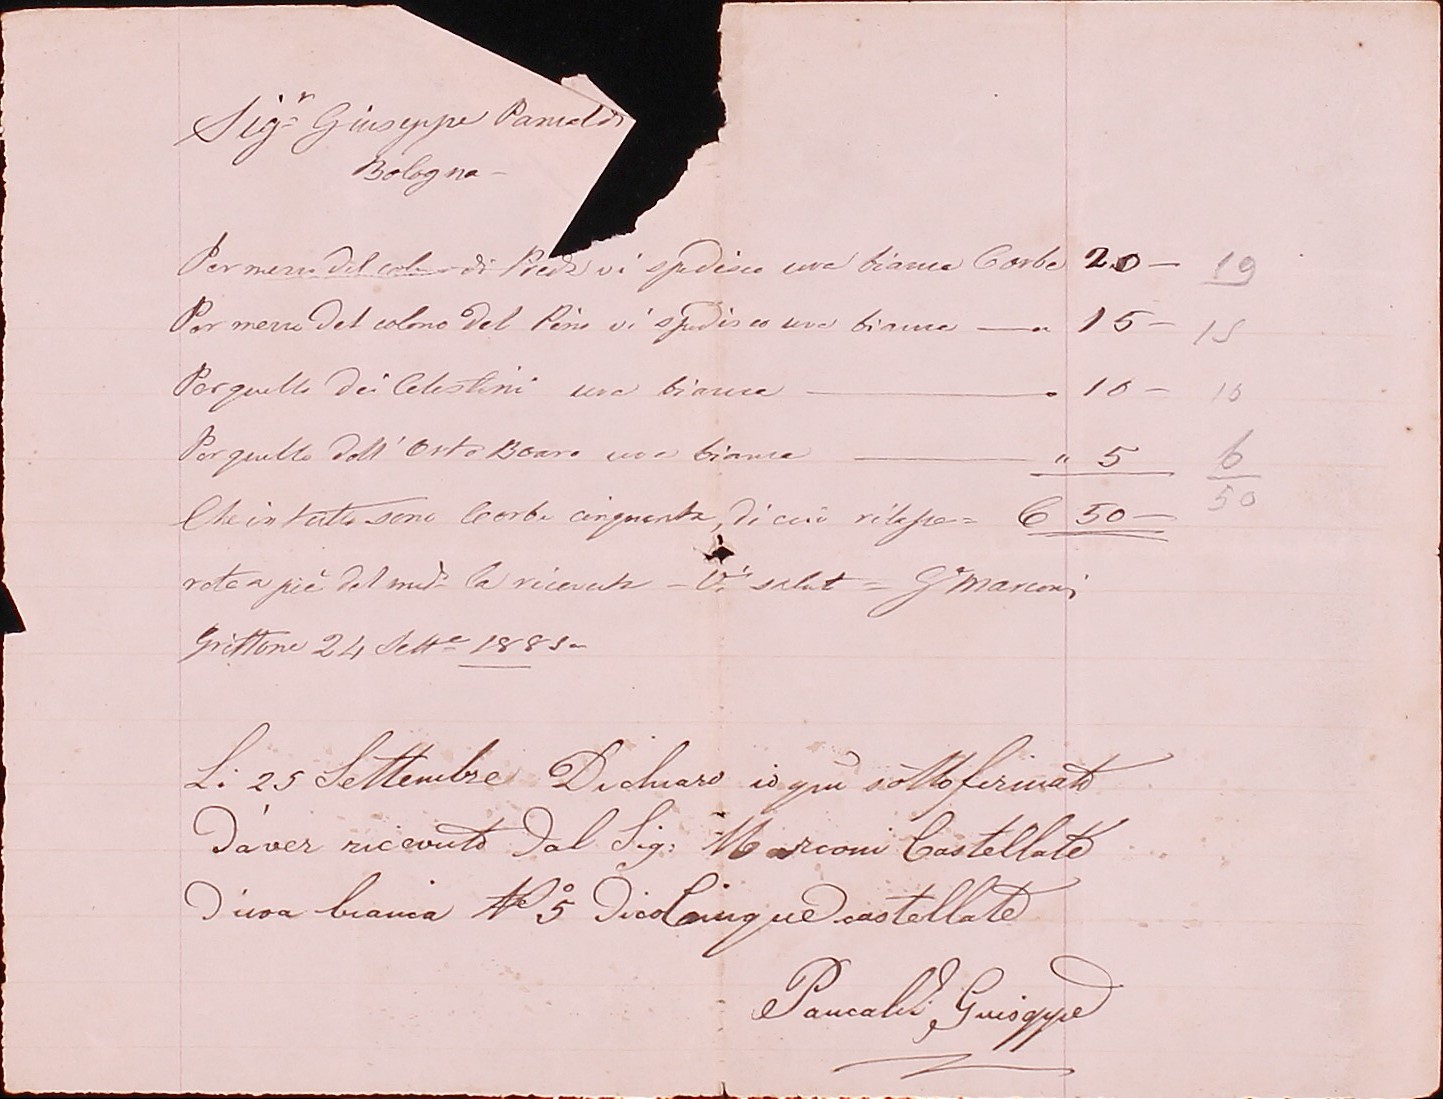 Sig.r Giuseppe Pancaldi
Bologna -
Per mezzo del colono di Piedi vi spedisco uva bianca Corbe 20 - 19
Per mezzo del colono del Pino vi spedisco uva bianca — " 15 - 15
Per quello dei Celestini uva bianca — " 10 - 10
Per quello dell' Orto Boaro uva bianca — " 5 6
50
Che in tutto sono Corbe cinquanta, di cui rilasce= C 50 -
rete a piè del med.o la ricevuta - Vi salut = G. Marconi
Grittone 24 Sett.e 1885
Li 25 Settembre Dichiaro io qui sottofirmato
D'aver ricevuto dal Sig: Marconi Castellate
D'uva bianca N.o 5 Dico Cinque castellate
Pancaldi Giuseppe